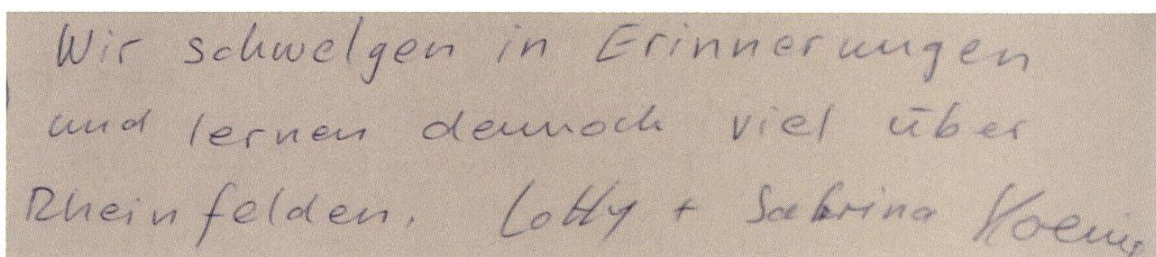 Wir schwelgen in Erinnerungen
und lernen dennoch viel über
Rheinfelden. Lotty + Sabrina Koenig